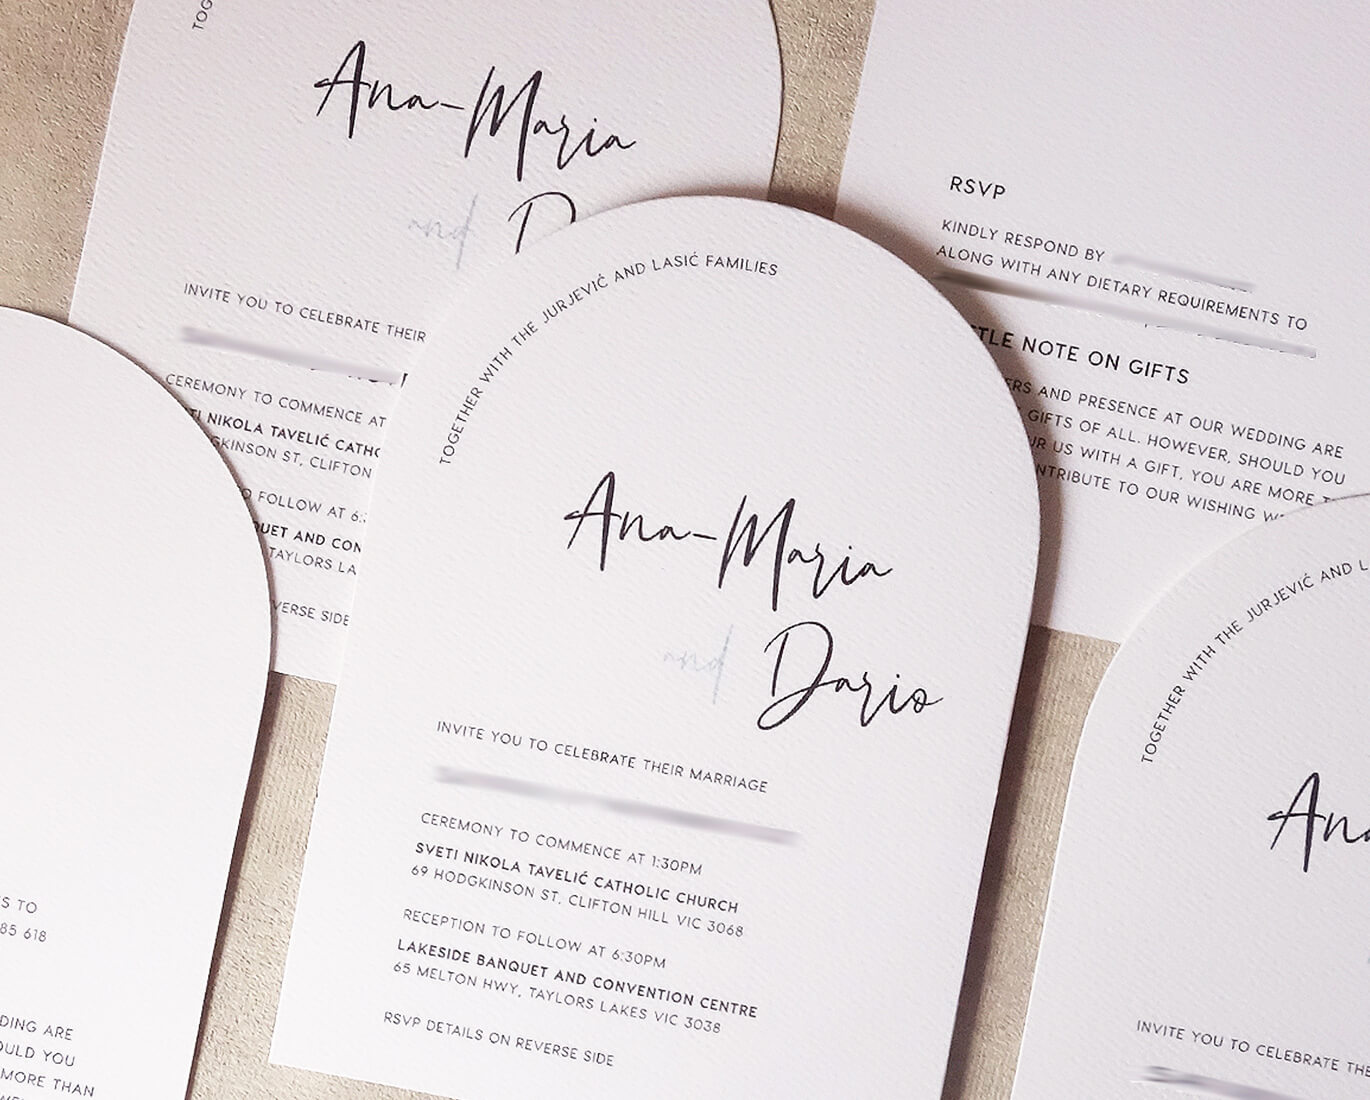 Ana-Maria
and
INVITE YOU TO CELEBRATE THEIR
CEREMONY TO COMMENCE AT
NIKOLA TAVELIĆ
ST, CLIFTON
FOLLOW AT
AND
TAYLORS
SIDE
RSVP
KINDLY RESPOND BY
ALONG WITH ANY DIETARY REQUIREMENTS TO
NOTE ON GIFTS
AND PRESENCE AT OUR WEDDING ARE
GIFTS OF ALL. HOWEVER, SHOULD YOU
US WITH A GIFT, YOU ARE MORE
TO OUR WISHING
TOGETHER WITH THE JURJEVIĆ AND LASIĆ FAMILIES
Ana-Maria
and Dario
INVITE YOU TO CELEBRATE THEIR MARRIAGE
CEREMONY TO COMMENCE AT 1:30PM
SVETI NIKOLA TAVELIĆ CATHOLIC CHURCH
69 HODGKINSON ST, CLIFTON HILL VIC 3068
RECEPTION TO FOLLOW AT 6:30PM
LAKESIDE BANQUET AND CONVENTION CENTRE
65 MELTON HWY, TAYLORS LAKES VIC 3038
RSVP DETAILS ON REVERSE SIDE
TO
618
ARE
YOU
MORE THAN
TOGETHER WITH THE JURJEVIĆ AND
INVITE YOU TO CELEBRATE